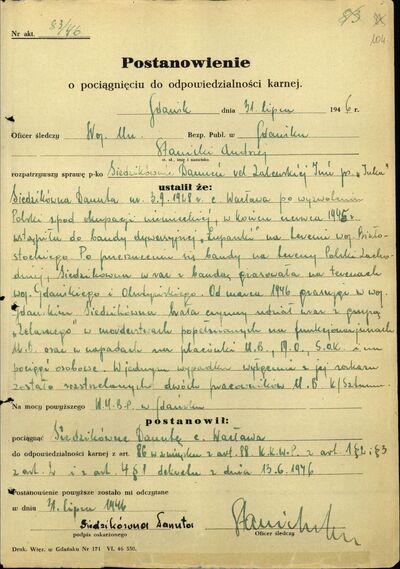 83
104
Nr akt. 83/46
Postanowienie
o pociągnięciu do odpowiedzialności karnej.
Gdańsk dnia 31 lipca 1946 r.
Oficer śledczy Woj. Urz. Bezp. Publ. w Gdańsku
Stawicki Andrzej
st. sł., imię i nazwisko
rozpatrzywszy sprawę p-ko Siedzikównie Danucie vel Zalewskiej Inż ps. "Inka"
ustalił że:
Siedzikówna Danuta ur. 3.9.1928 c. Wacława po wyzwoleniu
Polski spod okupacji niemieckiej, w końcu czerwca 1945 r.
wstąpiła do bandy dywersyjnej "Łupaszki" na terenie woj. Biało-
stockiego. Po przerzuceniu się bandy na tereny Polski Zacho-
dniej, Siedzikówna wraz z bandą grasowała na terenach
woj. Gdańskiego i Olsztyńskiego. Od marca 1946 grasując w woj.
Gdańskim Siedzikówna brała czynny udział wraz z grupą
"Żelaznego" w morderstwach popełnionych na funkcjonariuszach
M.O. oraz w napadach na placówki U.B., M.O., S.O.K. i na
pociągi osobowe. W jednym wypadku wyłącznie z jej rozkazu
zostało rozstrzelanych dwóch pracowników U.B. k/Sztumu.
Na mocy powyższego W.U.B.P. w Gdańsku
postanowił:
pociągnąć Siedzikównę Danutę c. Wacława
do odpowiedzialności karnej z art. 86 w związku z art. 88 K.K.W.P. z art. 1 § 2 i § 3
z art. 2 i z art. 4 § 1 dekretu z dnia 13.6.1946
Postanowienie powyższe zostało mi odczytane
w dniu 31 lipca 1946
Siedzikówna Danuta
podpis oskarżonego
Oficer śledczy
Druk. Więz. w Gdańsku Nr 171 VI. 46 550.